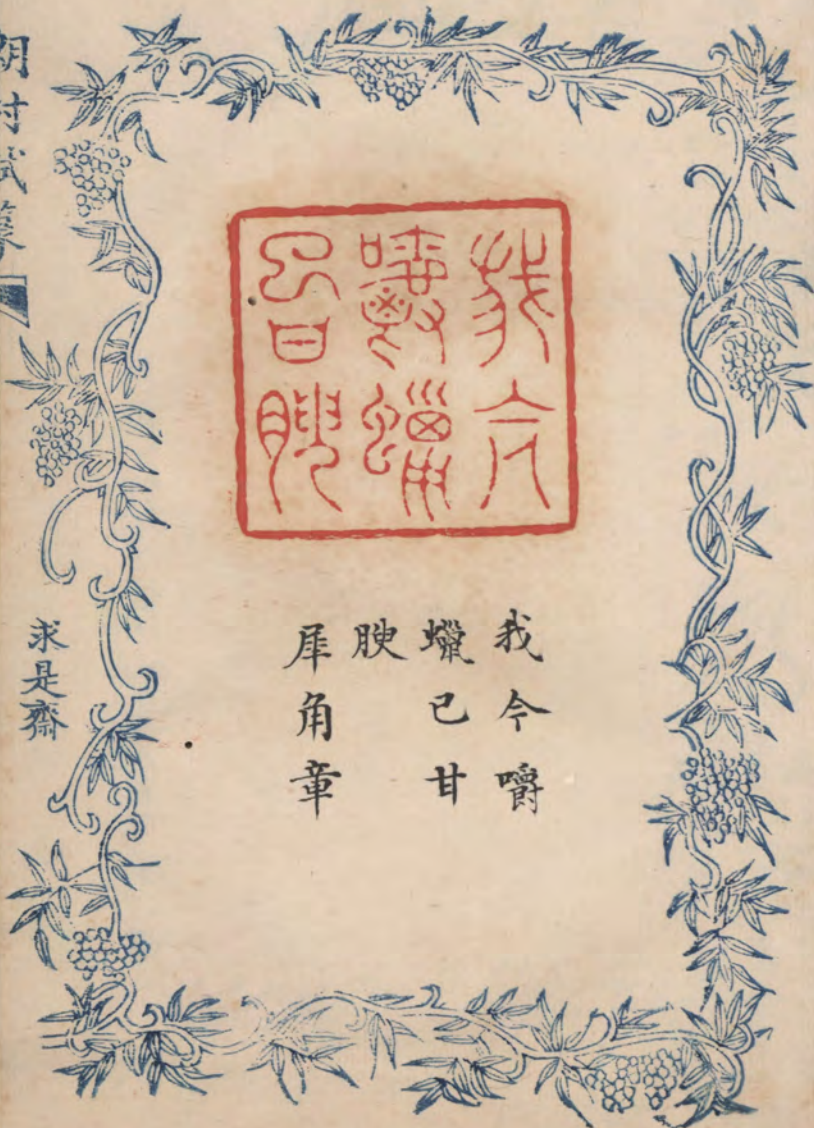 我今
嚼蠟
已甘腴
我今嚼
蠟已甘
腴
犀角章
求是齋